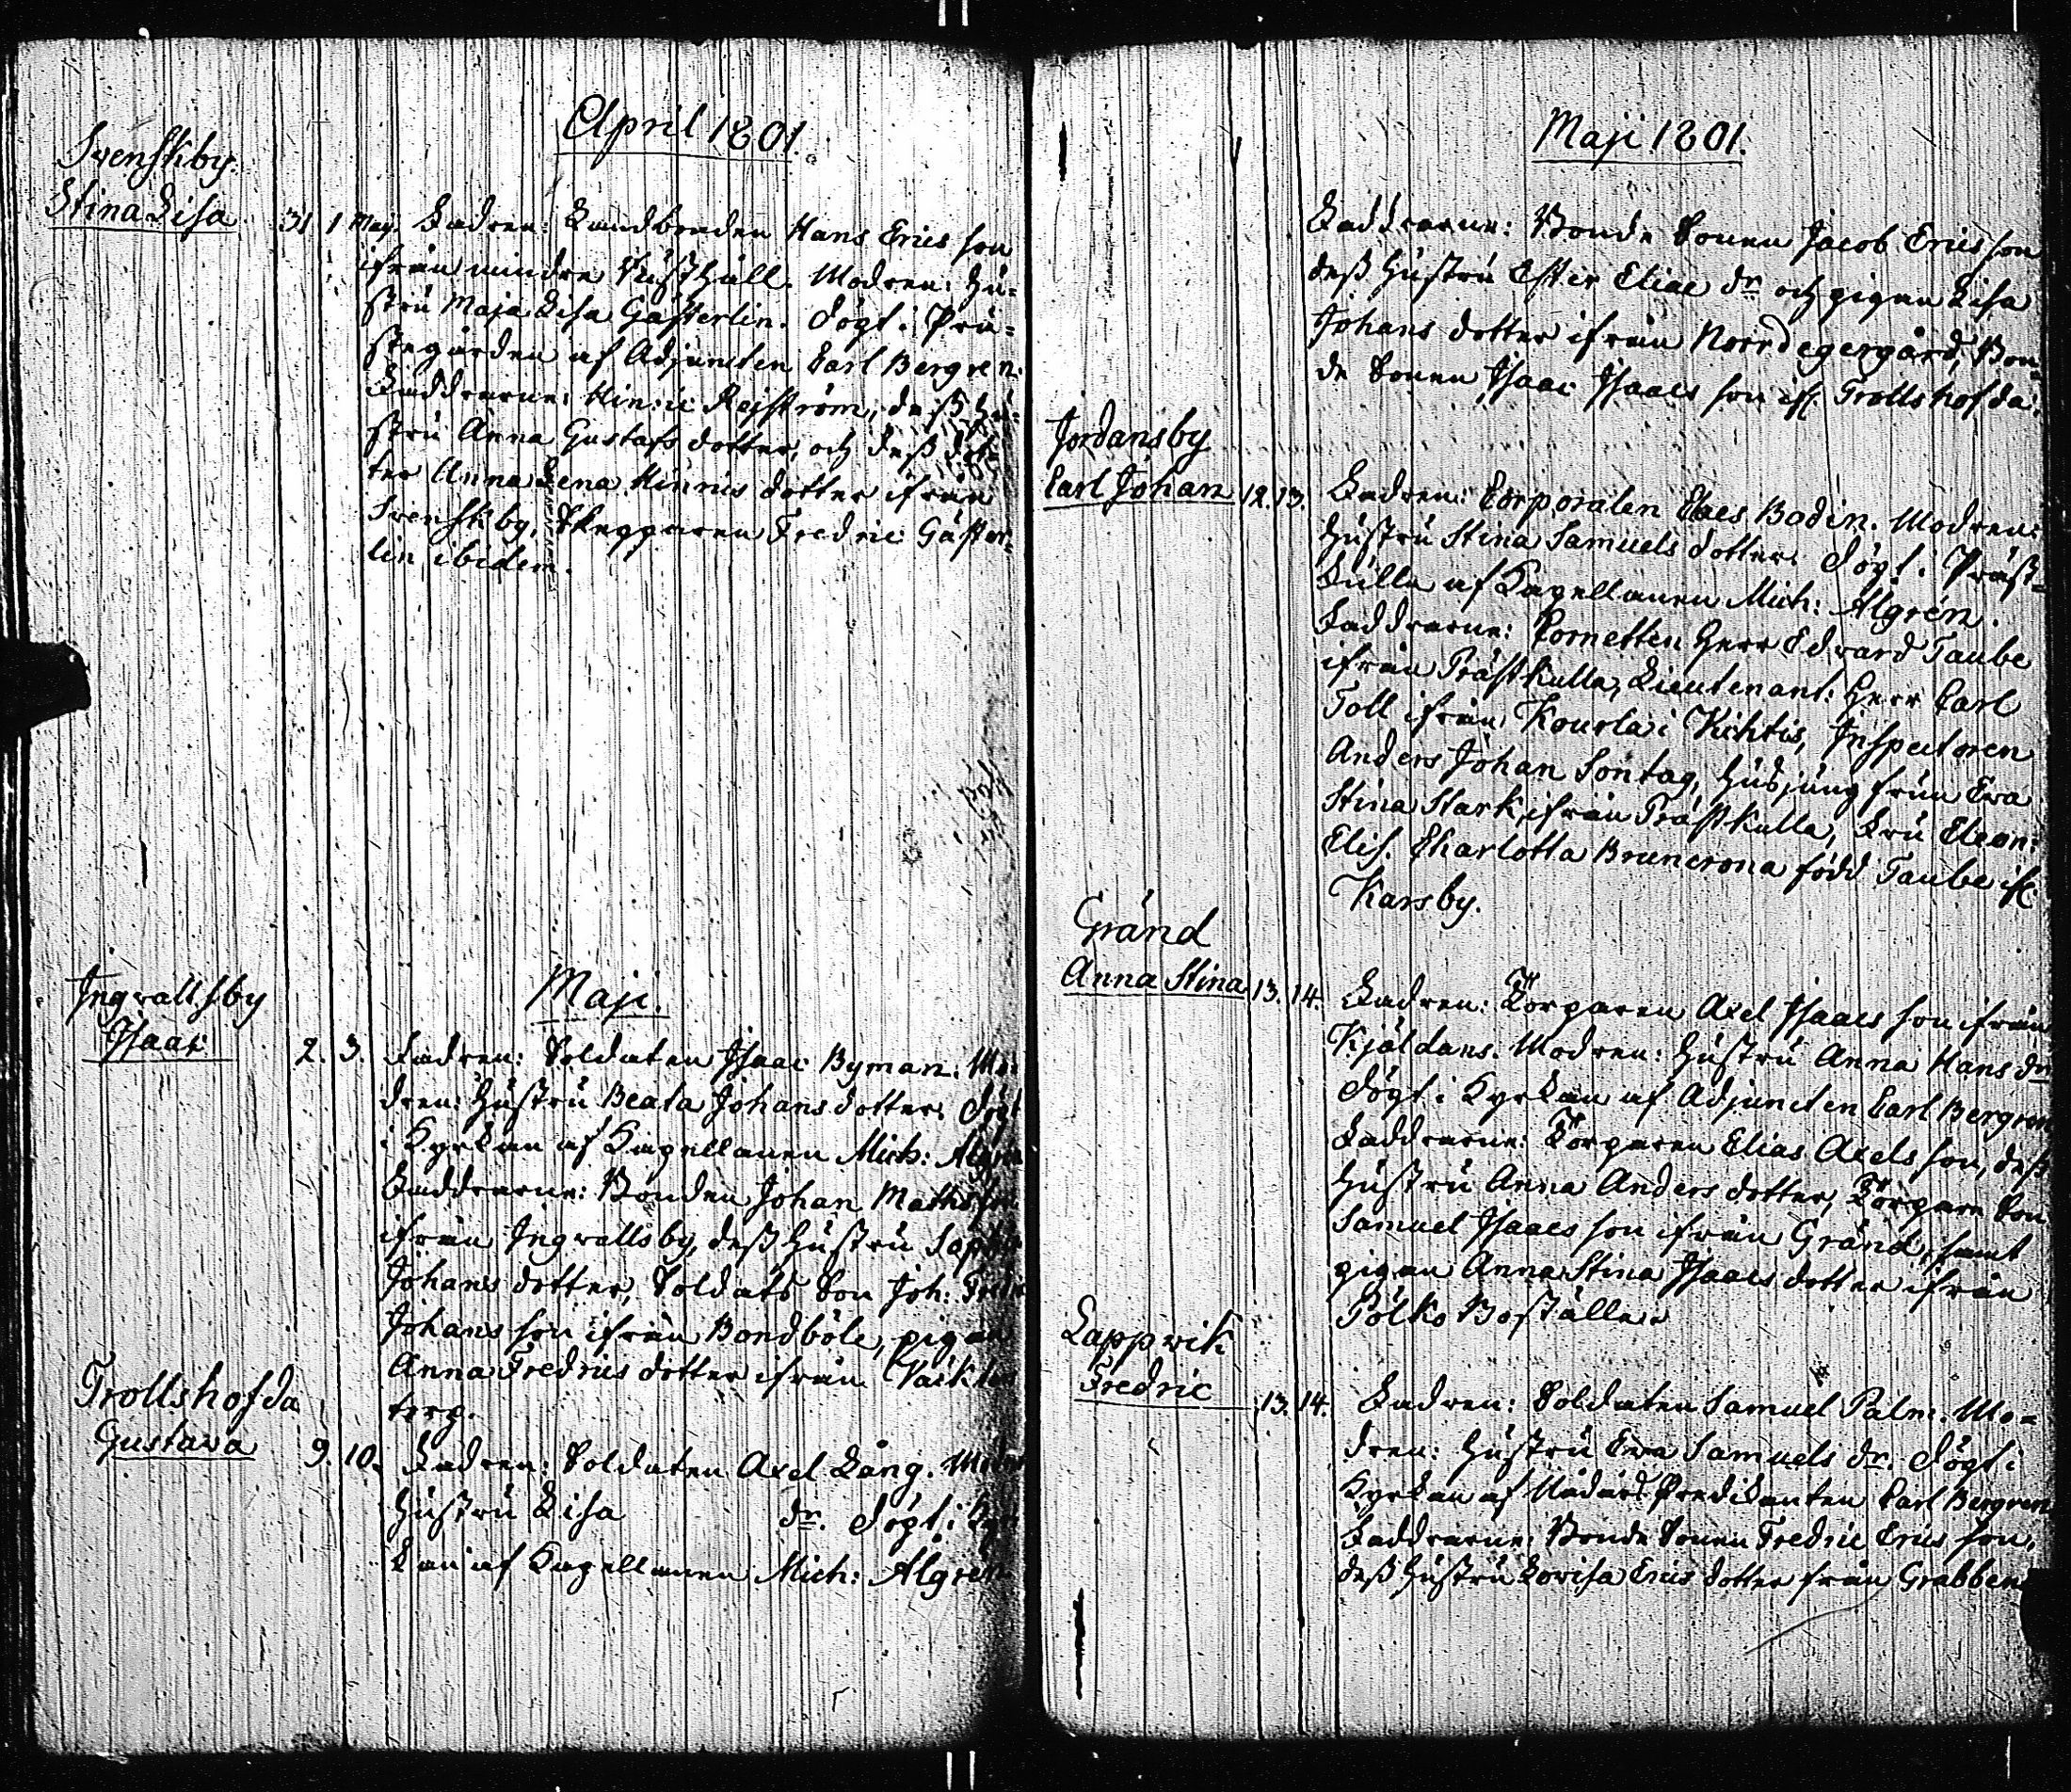 April 1801.
Svenskby.
Stina Lisa 31 1 Maij. Fadren: Landbonden Hans Erics son
ifrån mindre Rusthåll. Modren: Hu=
stru Maja Lisa Gästerlin. Dögt i Prä=
stegården af Adjuncten Carl Bergren.
Faddrarne: Hinric Rejström, dess Hu=
stru Anna Gustafs dotter, och dess dot=
ter Anna Lena Hinrics dotter ifrån
Svenskby, Skepparen Fredric Gäster=
lin ibidem.
Maji.
Ingvallsby
Isaac 2. 3. Fadren: Soldaten Isaac Byman. Mo=
dren: Hustru Beata Johans dotter. Dögt
i Kyrkan af Kapellanen Mich: Algrén
Faddrarne: Bonden Johan Maths son
ifrån Ingvallsby, dess Hustru Sophia
Johans dotter, Soldats Son Joh: Fredr
Johans son ifrån Bondböle, pigan
Anna Fredrics dotter ifrån
torp.
Trollshofda
Gustava 9. 10. Fadren: Soldaten Axel Lång. Modren
Hustru Lisa dr. Dögt i Kyr
kan af Kapellanen Mich: Algrén
Maji 1801.
Faddrarne: Bonde Sonen Jacob Erics son
dess Hustru Ester Eliae dr och pigan Lisa
Johans dotter ifrån Norrdegergård, Bon=
de Sonen Isaac Isaacs son ifr. Trollshofda.
Jordansby
Carl Johan 12. 13. Fadren: Corporalen Claes Bodin. Modren:
Hustru Stina Samuels dotter. Dögt i Präst=
kulla af Kapellanen Mich: Algrén.
Faddrarne: Cornetten Herr Edvard Taube
ifrån Prästkulla, Lieutenant: Herr Carl
Toll ifrån Kourla i Kihtis, Inspectoren
Anders Johan Sontag, Husjungfrun Eva
Stina Stark ifrån Prästkulla, Fru Eleon:
Elis. Charlotta Brunerona född Taube ifr.
Karsby.
Gränd
Anna Stina 13. 14. Fadren: Torparen Axel Isaacs son ifrån
Kjäldans. Modren: Hustru Anna Hans dr
Dögt i Kyrkan af Adjuncten Carl Bergren
Faddrarne: Torparen Elias Axels son, dess
Hustru Anna Anders dotter, Torpare Son
Samuel Isaacs son ifrån Gränd, samt
pigan Anna Stina Isaacs dotter ifrån
Pölks Boställe.
Lappvik
Fredric 13. 14. Fadren: Soldaten Samuel Palm. Mo=
dren: Hustru Eva Samuels dr. Dögt i
Kyrkan af Nådårs Predikanten Carl Bergren
Faddrarne: Bonde Sonen Fredric Erics son,
dess Hustru Lovisa Erics dotter från Grabben